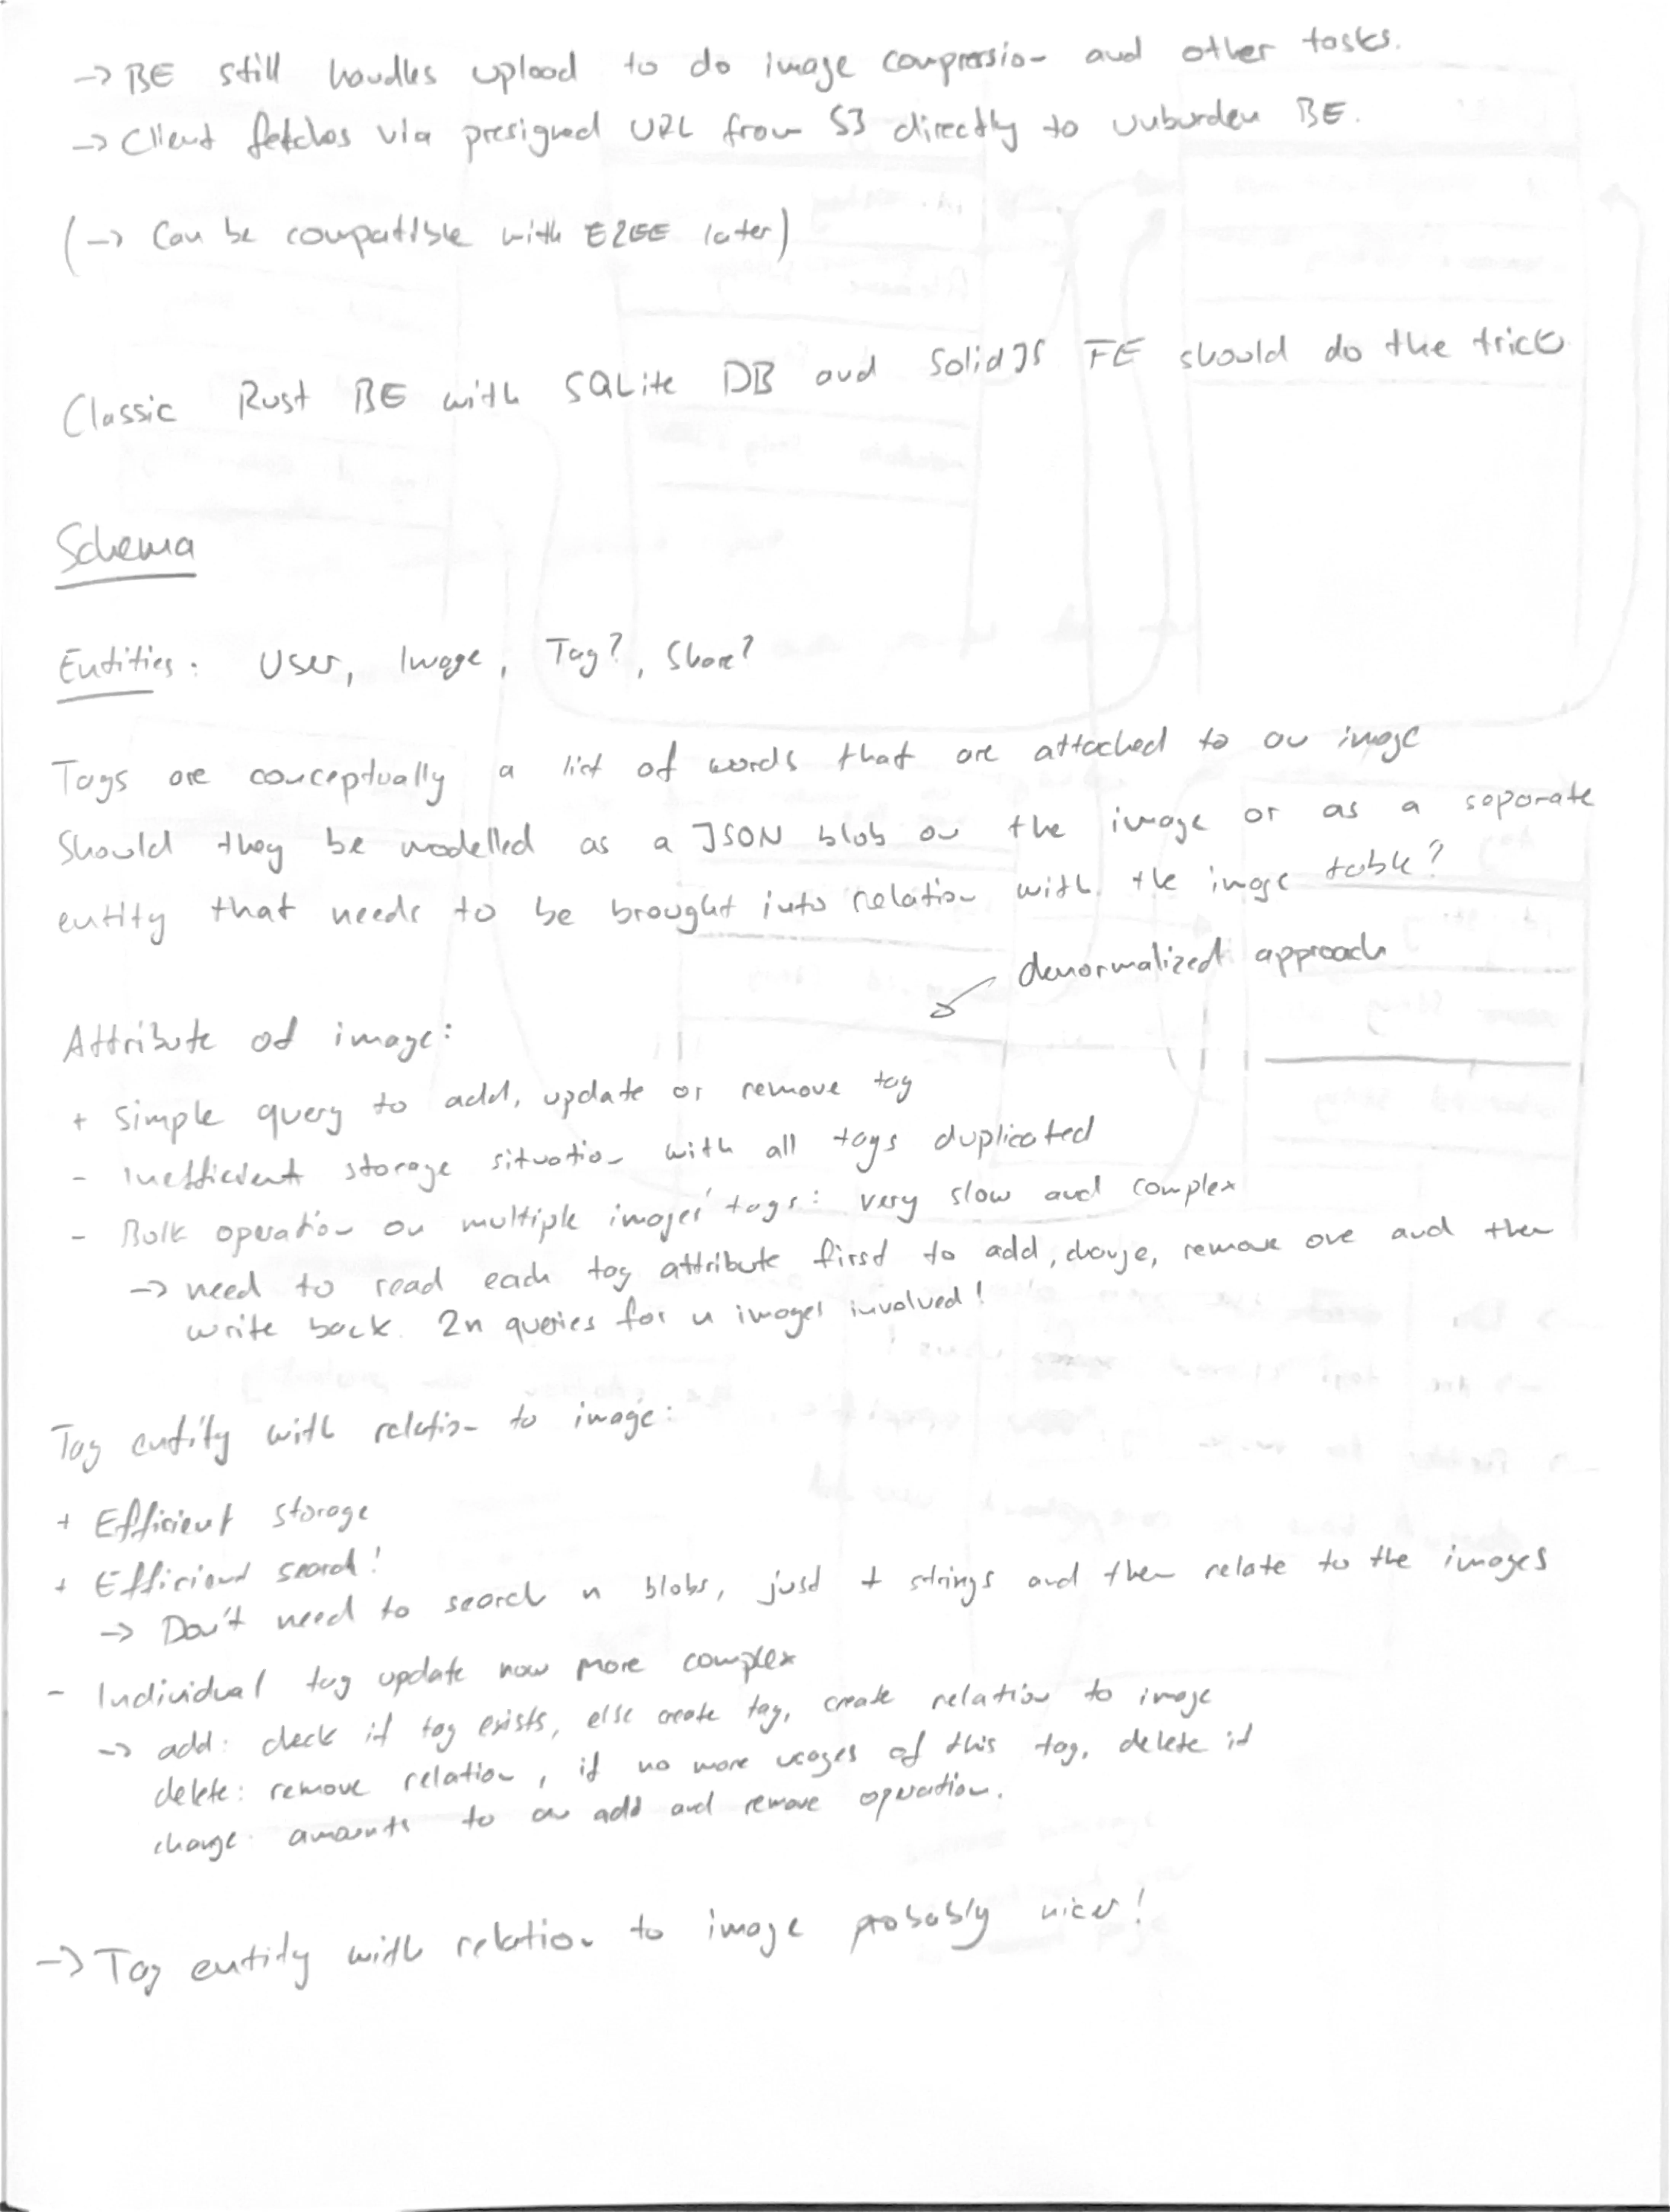 → BE still handles upload to do image compression and other tasks.
→ Client fetches via presigned URL from S3 directly to unburden BE.
(→ Can be compatible with E2EE later)
Classic Rust BE with SQLite DB and SolidJS FE should do the trick
Schema
Entities: User, Image, Tag?, Share?
Tags are conceptually a list of words that are attached to an image
Should they be modelled as a JSON blob on the image or as a separate
entity that needs to be brought into relation with the image table?
denormalized approach
Attribute of image:
+ Simple query to add, update or remove tag
- Inefficient storage situation with all tags duplicated
- Bulk operation on multiple images' tags: very slow and complex
→ need to read each tag attribute first to add, change, remove one and then
write back. 2n queries for n images involved!
Tag entity with relation to image:
+ Efficient storage
+ Efficient search!
→ Don't need to search n blobs, just t strings and then relate to the images
- Individual tag update now more complex
→ add: check if tag exists, else create tag, create relation to image
delete: remove relation, if no more usages of this tag, delete it
change: amounts to an add and remove operation.
→ Tag entity with relation to image probably nicer!